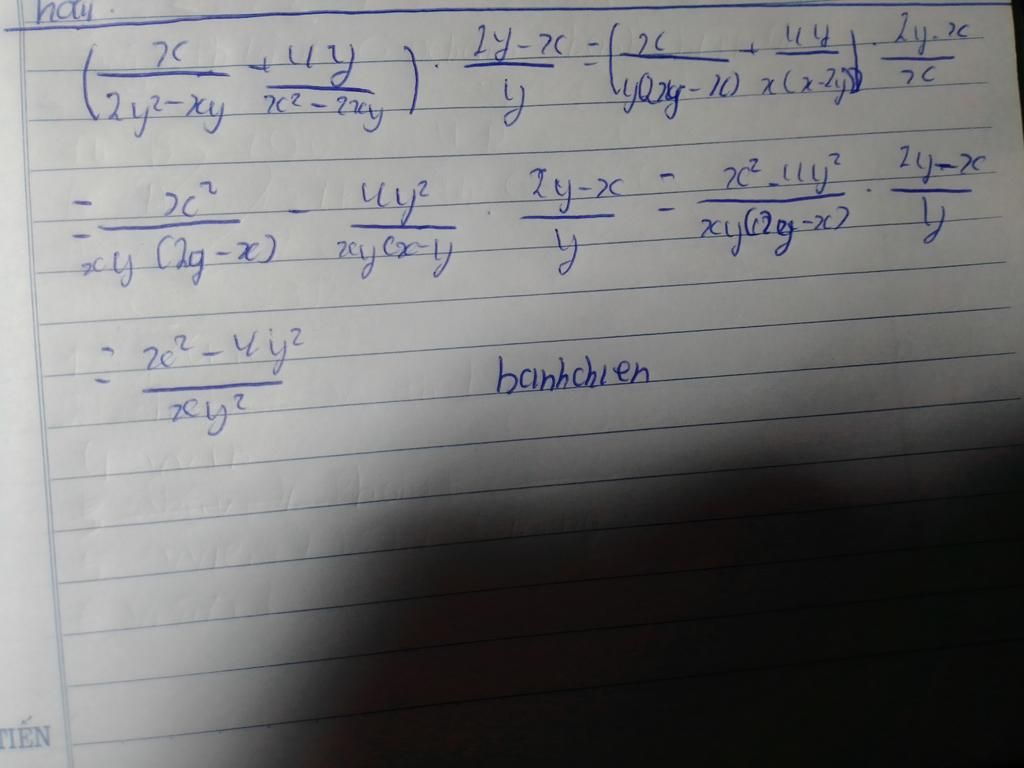 hay.
(x/(2y²-xy) + 4y/(x²-2xy)) · (2y-x)/y = (x/(y(2y-x)) + 4y/(x(x-2y))) · (2y-x)/x
= x²/(xy(2y-x)) - 4y²/(xy(x-y · (2y-x)/y = (x²-4y²)/(xy(2y-x)) · (2y-x)/y
= (x²-4y²)/(xy²)
banhchien
TIẾN